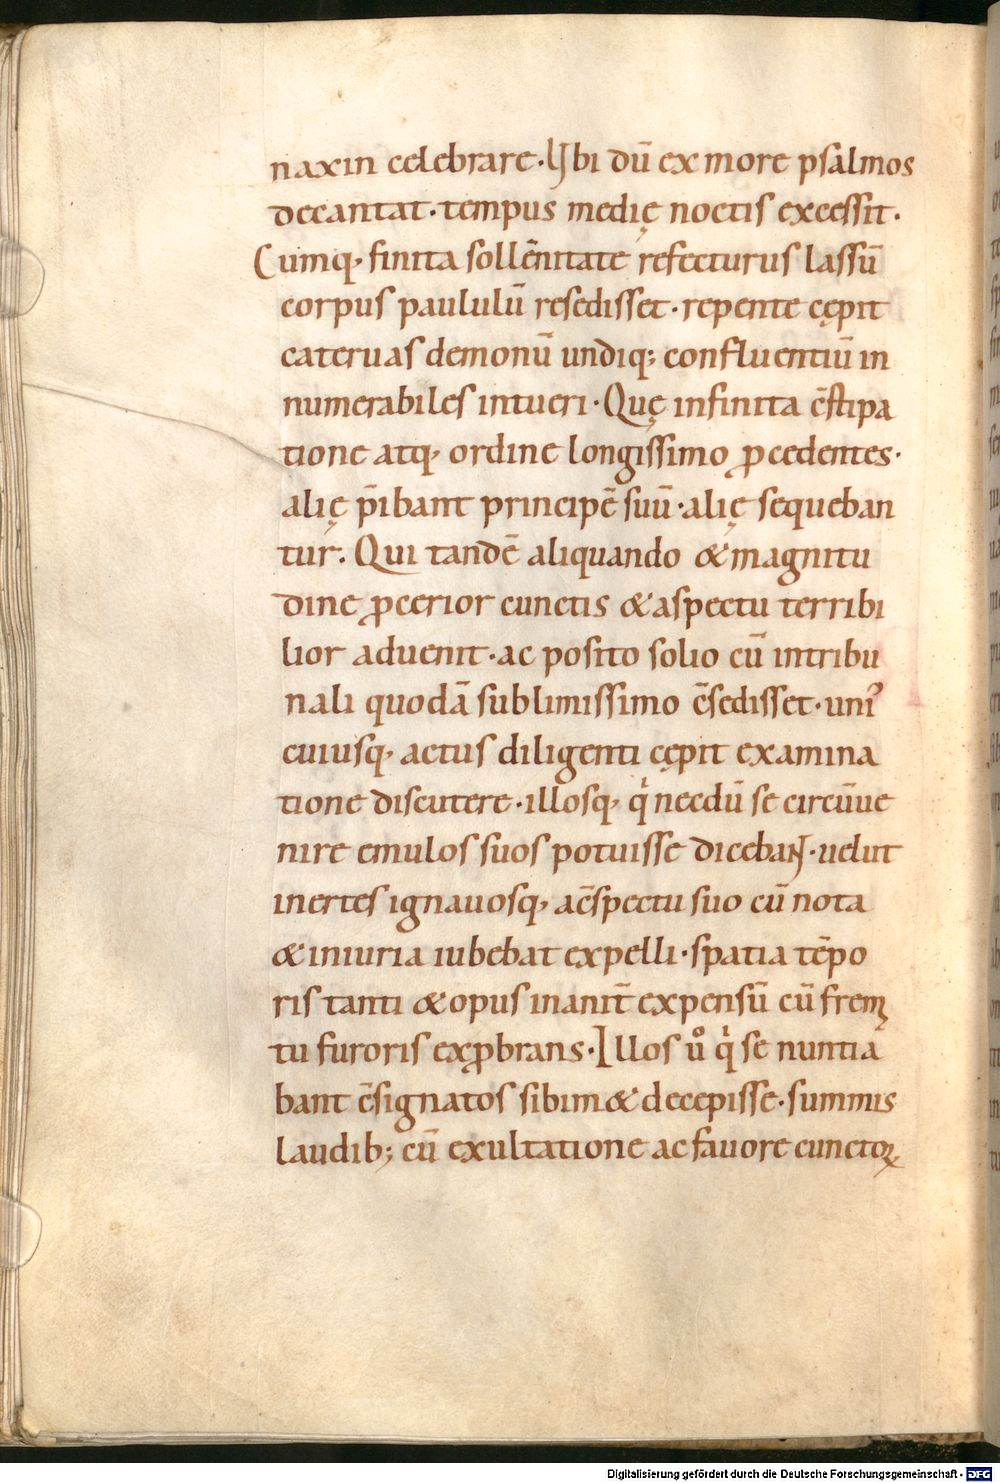 naxin celebrare · Ubi dū ex more psalmos
decantat · tempus medię noctis excessit ·
Cumq; finita sollēnitate refecturus lassū
corpus paululū resedisset · repente cępit
cateruas demonū undiq; confluentiū in
numerabiles intueri · Quę infinita c̄stipa
tione atq; ordine longissimo ꝓcedentes ·
alię p̄ibant principē suū · alię sequeban
tur. Qui tandē aliquando & magnitu
dine ꝓcerior cunctis & aspectu terribi
lior aduenit · ac posito solio cū in tribu
nali quodā sublimissimo c̄sedisset · uniꝰ
cuiusq; actus diligenti cępit examina
tione discutere · illosq; qͥ necdū se circūue
nire emulos suos potuisse dicebant · uelut
inertes ignauosq; a c̄spectu suo cū nota
& iniuria iubebat expelli · spatia tēpo
ris tanti & opus inanit̄ expensū cū fremi
tu furoris exꝓbrans · Illos uͦ qͥ se nuntia
bant c̄signatos sibim& decepisse · summis
laudib; cū exultatione ac fauore cunctoꝝ
Digitalisierung gefördert durch die Deutsche Forschungsgemeinschaft - DFG